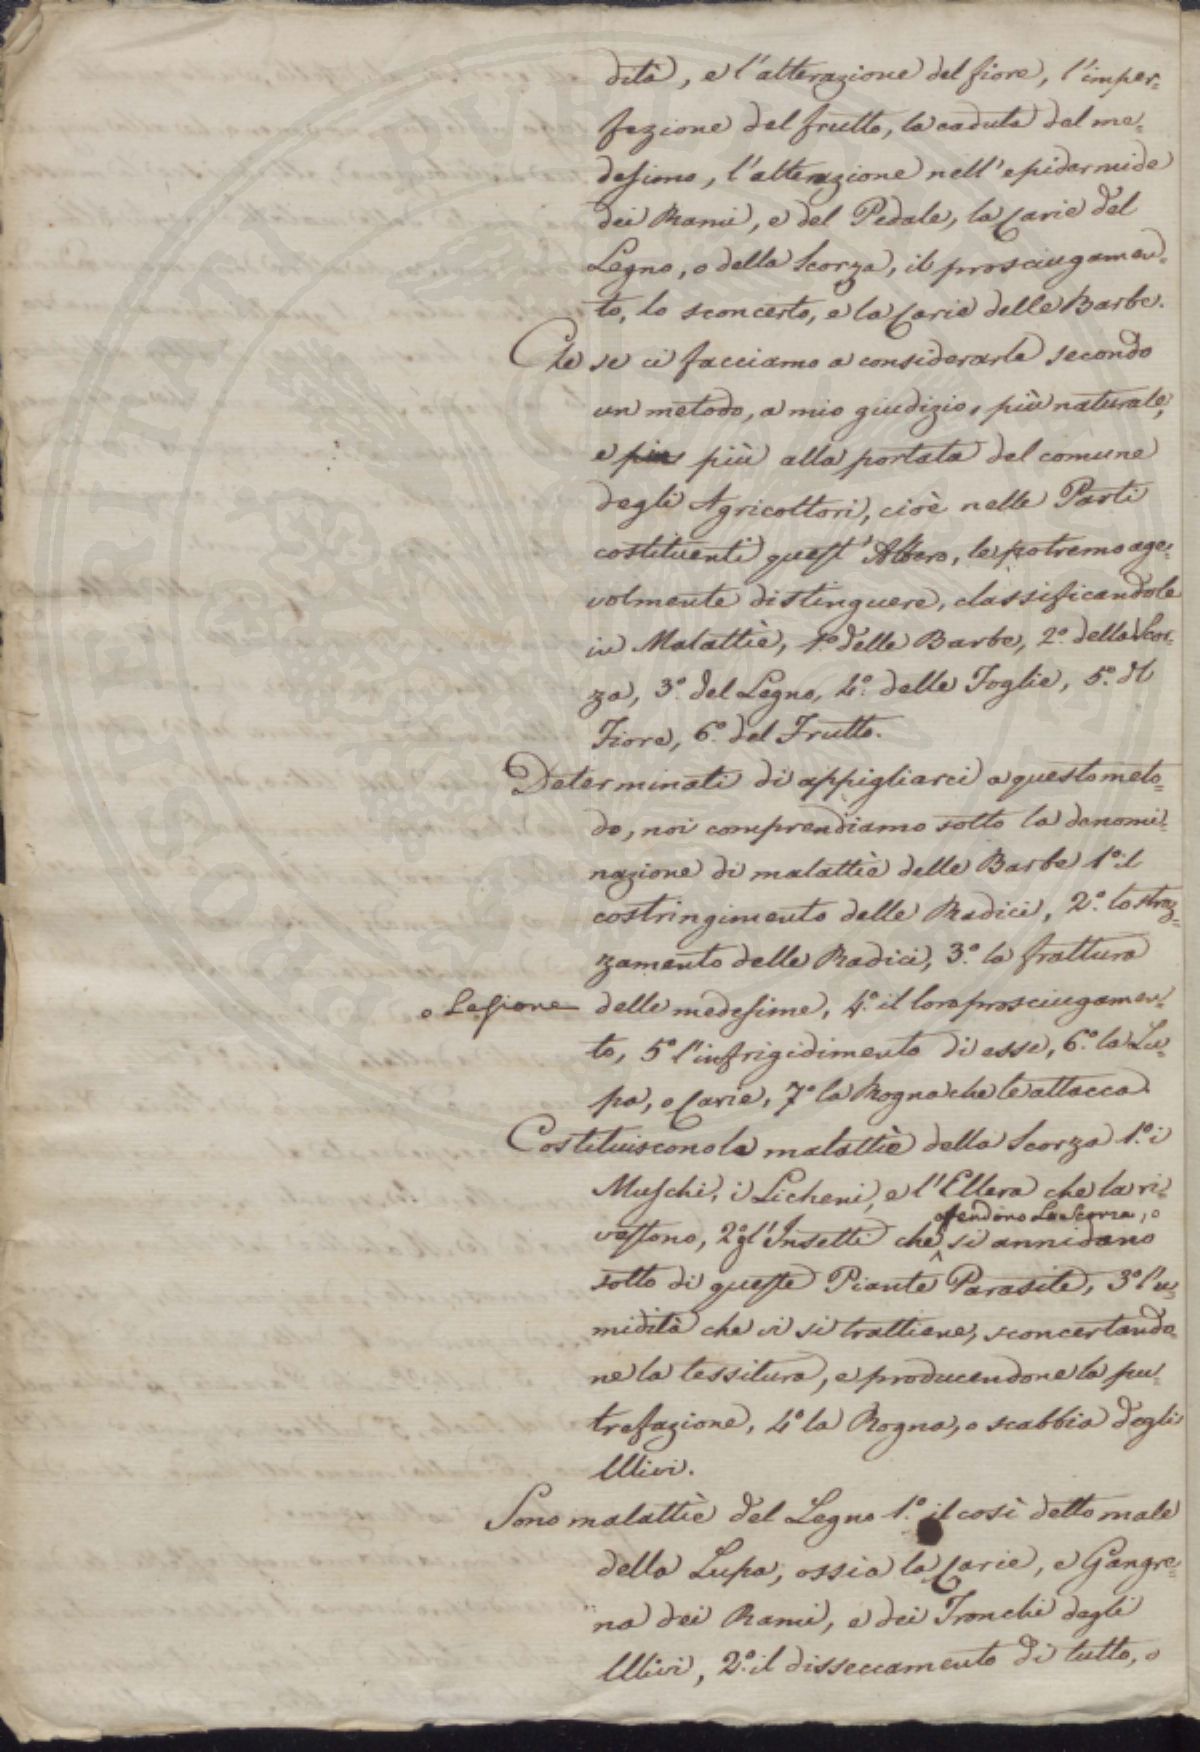 dità, e l'alterazione del fiore, l'imper=
fezione del frutto, la caduta del me=
desimo, l'alterazione nell'epidermide
dei Rami, e del Pedale, la Carie del
Legno, o della Scorza, il prosciugamen=
to, lo sconcerto, e la Carie delle Barbe.
Che se ci facciamo a considerarle secondo
un metodo, a mio giudizio, più naturale,
e più alla portata del comune
degli Agricoltori, cioè nelle Parti
costituenti quest'Albero, le potremo age=
volmente distinguere, classificandole
in Malattie, 1.º delle Barbe, 2.º della Scor=
za, 3.º del Legno, 4.º delle Foglie, 5.º del
Fiore, 6.º del Frutto.
Determinati di appigliarci a questo meto=
do, noi comprendiamo sotto la denomi=
nazione di malattie delle Barbe 1.º il
costringimento delle Radici, 2.º lo straz=
zamento delle Radici, 3.º la frattura
o Lesione delle medesime, 4.º il loro prosciugamen=
to, 5.º l'infrigidimento di esse, 6.º la Lu=
pa, o Carie, 7.º la Rogna che le attacca.
Costituiscono le malattie della Scorza 1.º i
Muschi, i Licheni, e l'Ellera che la ri=
offendono La Scorza, o
vestono, 2.º gl'Insetti che si annidano
sotto di queste Piante Parasite, 3.º l'u=
midità che vi si trattiene, sconcertando=
ne la tessitura, e producendone la pu=
trefazione, 4.º la Rogna, o scabbia degli
Ulivi.
Sono malattie del Legno 1.º il così detto male
della Lupa, ossia la Carie, e Gangre=
na dei Rami, e dei Tronchi degli
Ulivi, 2.º il disseccamento di tutto, o
BONONIENSIS